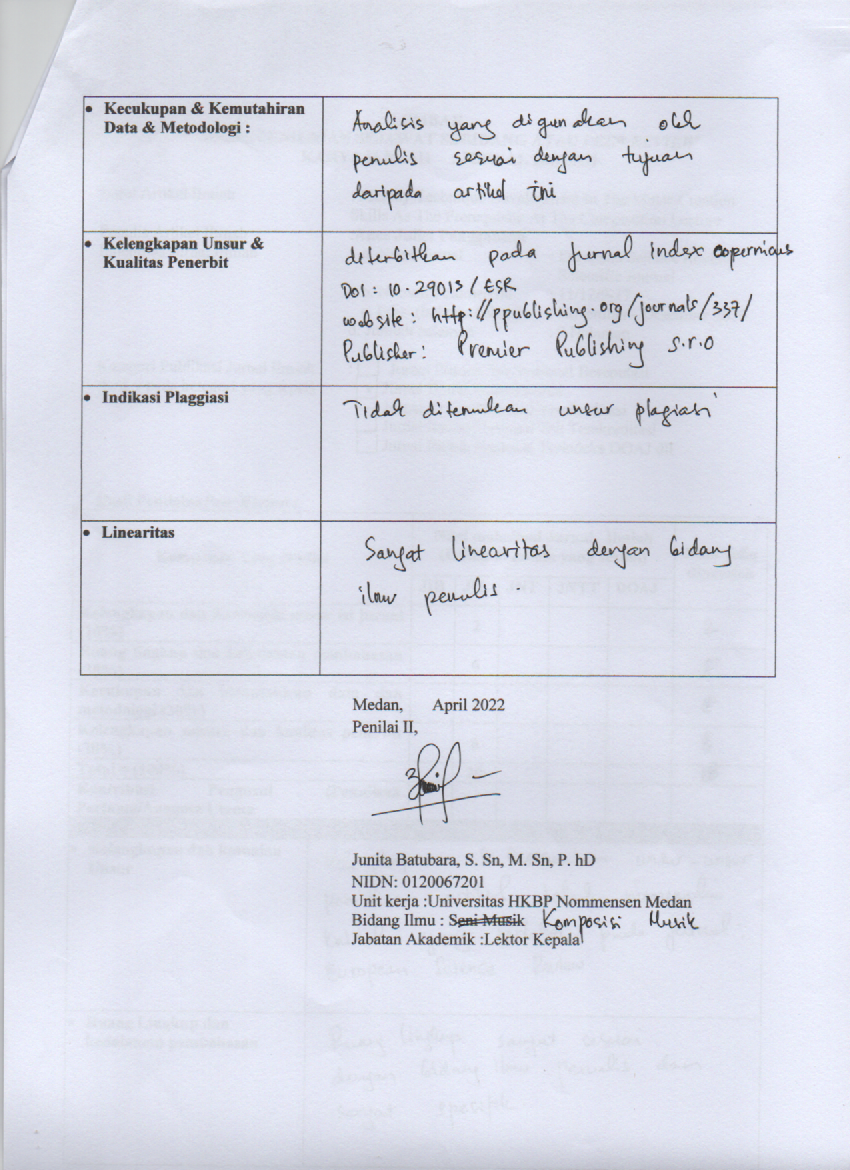 • Kecukupan & Kemutahiran
Data & Metodologi :
Analisis yang digunakan oleh
penulis sesuai dengan tujuan
daripada artikel ini
• Kelengkapan Unsur &
Kualitas Penerbit
diterbitkan pada Jurnal index copernicus
DOI : 10.29013 / ESR
website : http://ppublishing.org/journals/337/
Publisher : Premier Publishing s.r.o
• Indikasi Plaggiasi
Tidak ditemukan unsur plagiasi
• Linearitas
Sangat linearitas dengan bidang
ilmu penulis .
Medan, April 2022
Penilai II,
Junita Batubara, S. Sn, M. Sn, P. hD
NIDN: 0120067201
Unit kerja :Universitas HKBP Nommensen Medan
Bidang Ilmu : Seni Musik Komposisi Musik
Jabatan Akademik :Lektor Kepala